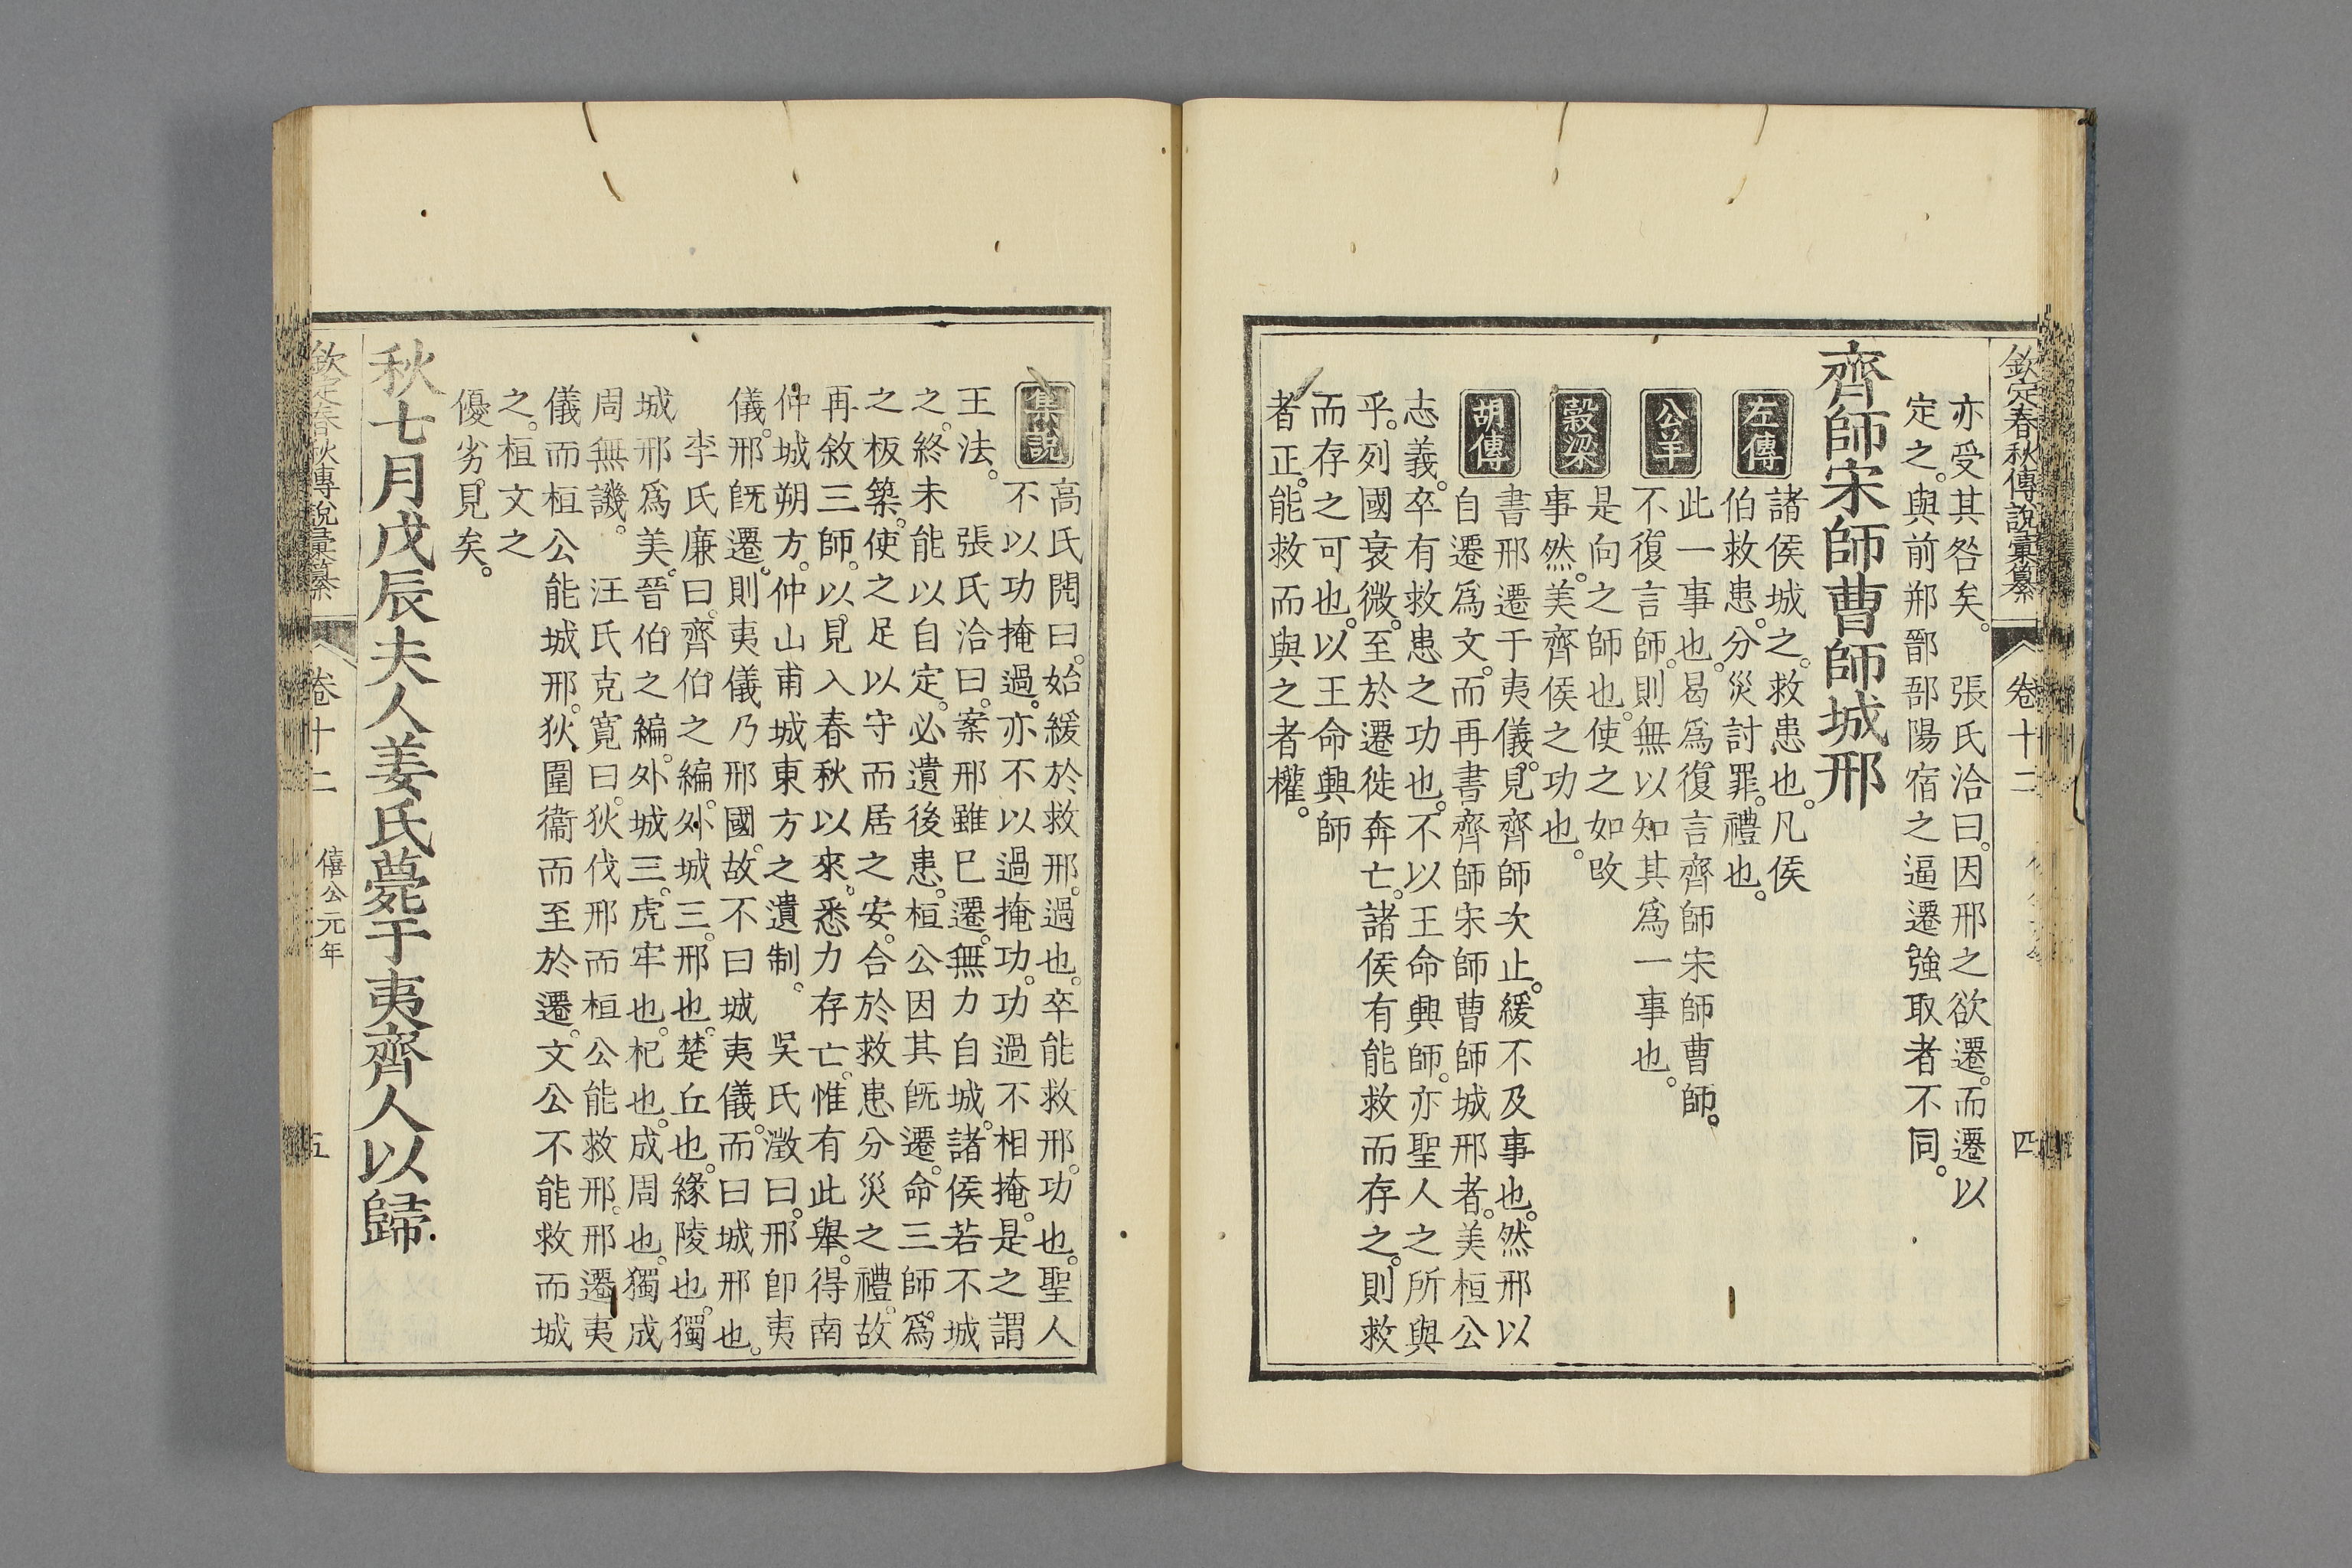 欽定春秋傳說彙纂 卷十二 四
亦受其咎矣。 張氏洽曰。因邢之欲遷。而遷以
定之。與前郱鄑郚陽宿之逼遷強取者不同。
齊師宋師曹師城邢
左傳 諸侯城之。救患也。凡侯
伯救患。分災討罪。禮也。
公羊 此一事也。曷爲復言齊師宋師曹師。
不復言師。則無以知其爲一事也。
穀梁 是向之師也。使之如改
事然。美齊侯之功也。
胡傳 書邢遷于夷儀。見齊師次止。緩不及事也。然邢以
自遷爲文。而再書齊師宋師曹師城邢者。美桓公
志義。卒有救患之功也。不以王命興師。亦聖人之所與
乎。列國衰微。至於遷徙奔亡。諸侯有能救而存之。則救
而存之可也。以王命興師
者正。能救而與之者權。
集說 高氏閌曰。始緩於救邢。過也。卒能救邢。功也。聖人
不以功掩過。亦不以過掩功。功過不相掩。是之謂
王法。 張氏洽曰。案邢雖已遷。無力自城。諸侯若不城
之。終未能以自定。必遺後患。桓公因其旣遷。命三師。爲
之板築。使之足以守而居之安。合於救患分災之禮。故
再敘三師。以見入春秋以來。悉力存亡。惟有此舉。得南
仲城朔方。仲山甫城東方之遺制。 吳氏澂曰。邢卽夷
儀。邢旣遷。則夷儀乃邢國。故不曰城夷儀。而曰城邢也。
李氏廉曰。齊伯之編。外城三。邢也。楚丘也。緣陵也。獨
城邢爲美。晉伯之編。外城三。虎牢也。杞也。成周也。獨成
周無譏。 汪氏克寬曰。狄伐邢而桓公能救邢。邢遷夷
儀而桓公能城邢。狄圍衞而至於遷。文公不能救而城
之。桓文之
優劣。見矣。
秋七月戊辰夫人姜氏薨于夷齊人以歸
欽定春秋傳說彙纂 卷十二 僖公元年 五